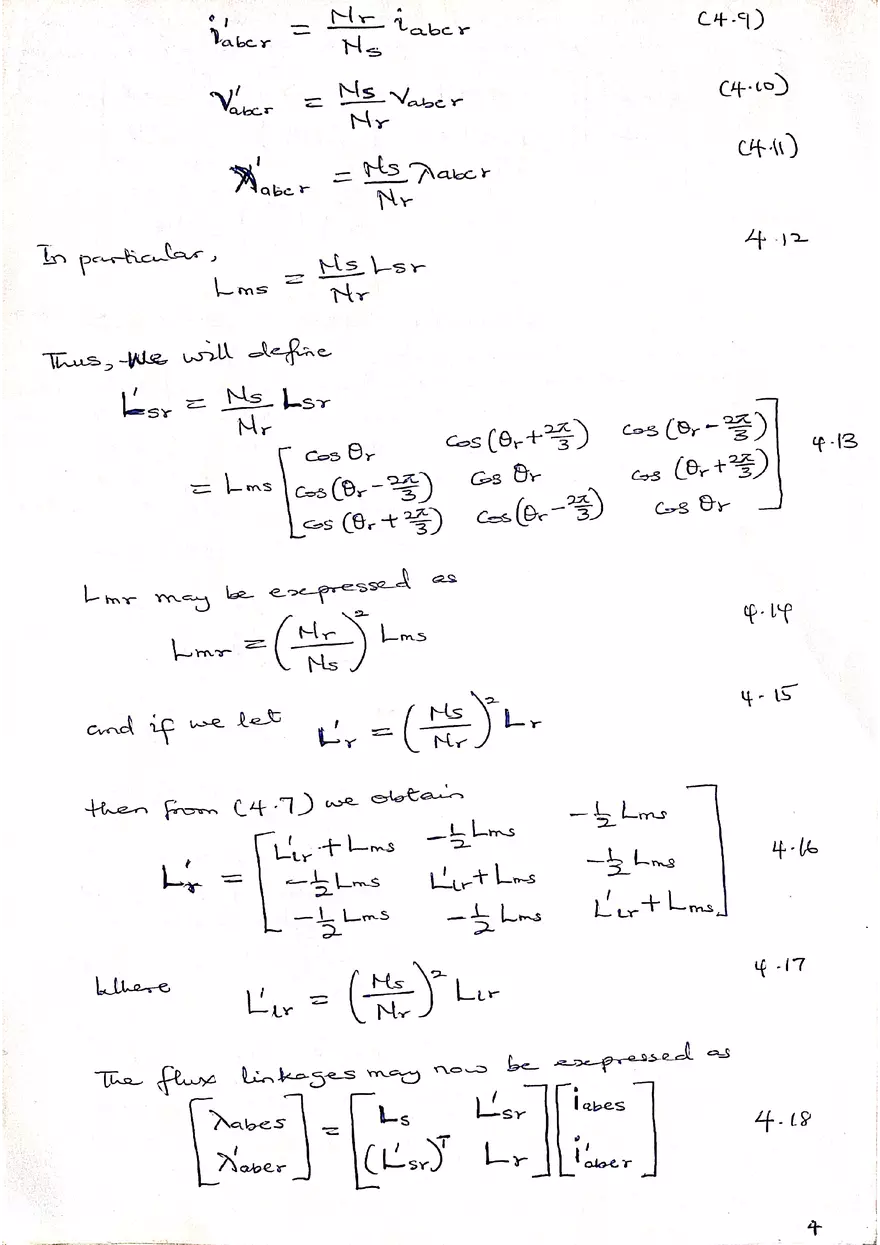 i'abcr = Nr/Ns iabcr (4.9)
V'abcr = Ns/Nr Vabcr (4.10)
λ'abcr = Ns/Nr λabcr (4.11)
In particular, Lms = Ns/Nr Lsr 4.12
Thus, We will define
L'sr = Ns/Nr Lsr
= Lms [cos θr cos(θr+2π/3) cos(θr-2π/3) 4.13
cos(θr-2π/3) cos θr cos(θr+2π/3)
cos(θr+2π/3) cos(θr-2π/3) cos θr]
Lmr may be expressed as
Lmr = (Nr/Ns)² Lms 4.14
and if we let L'r = (Ns/Nr)² Lr 4-15
then from (4.7) we obtain
L'r = [L'lr+Lms -1/2 Lms -1/2 Lms 4.16
-1/2 Lms L'lr+Lms -1/2 Lms
-1/2 Lms -1/2 Lms L'lr+Lms]
Where L'lr = (Ns/Nr)² Llr 4.17
The flux linkages may now be expressed as
[λabcs] = [Ls L'sr] [iabcs] 4.18
[λ'abcr] [(L'sr)ᵀ Lr] [i'abcr]
4